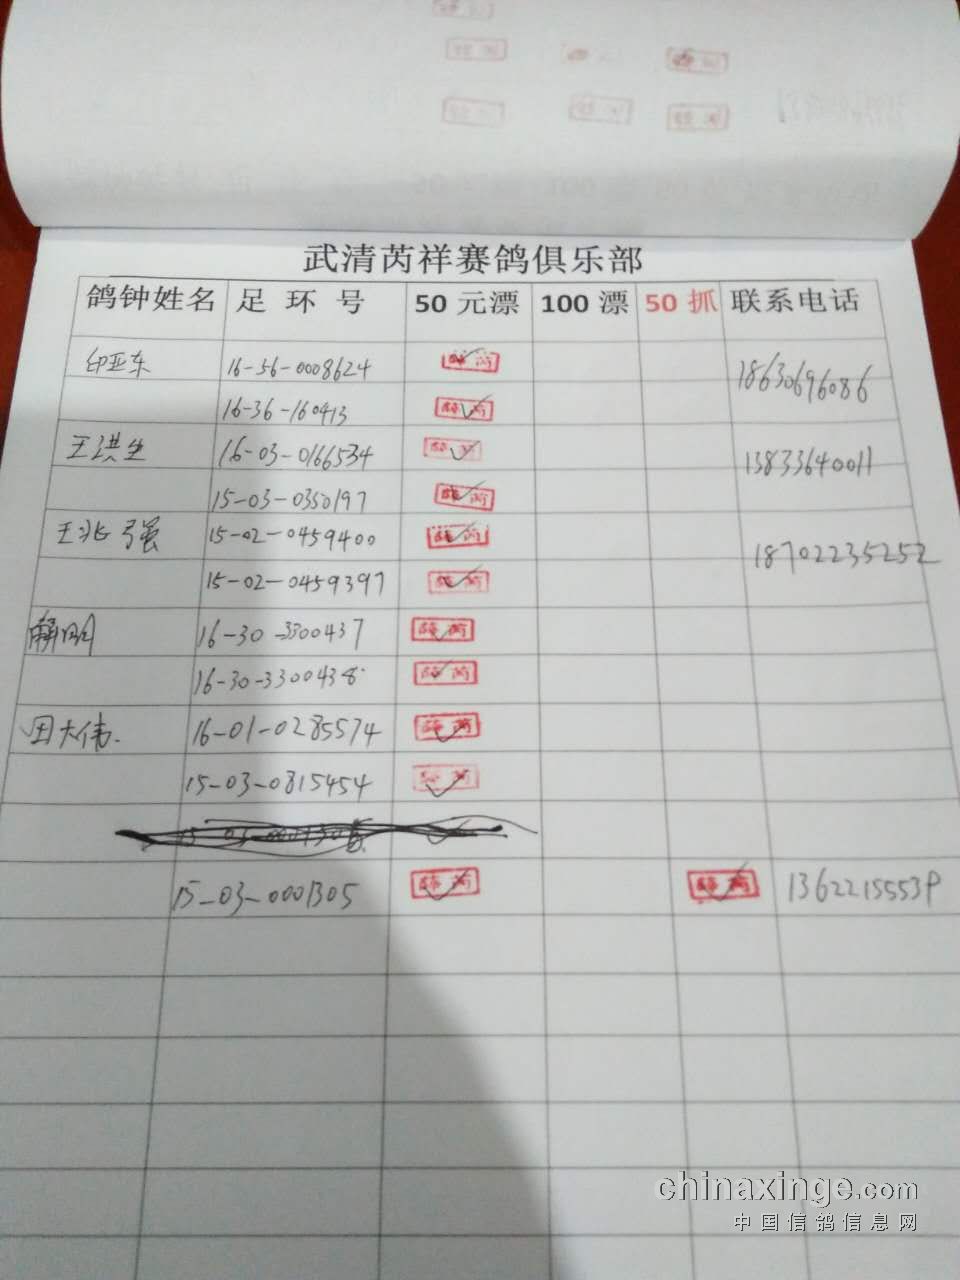 武清芮祥赛鸽俱乐部
鸽钟姓名 足 环 号 50 元漂 100 漂 50 抓 联系电话
印亚东 16-56-0008624 薛芮 18630696086
16-36-160413 薛芮
王洪生 16-03-0166534 薛芮 13833640011
15-03-0350197 薛芮
王兆强 15-02-0459400 薛芮 18702235252
15-02-0459397 薛芮
解明 16-30-3300437 薛芮
16-30-3300438 薛芮
田大伟. 16-01-0285574 薛芮
15-03-0815454 薛芮
15-03-0001305 薛芮 薛芮 1362215553P
chinaxinge.com
中国信鸽信息网